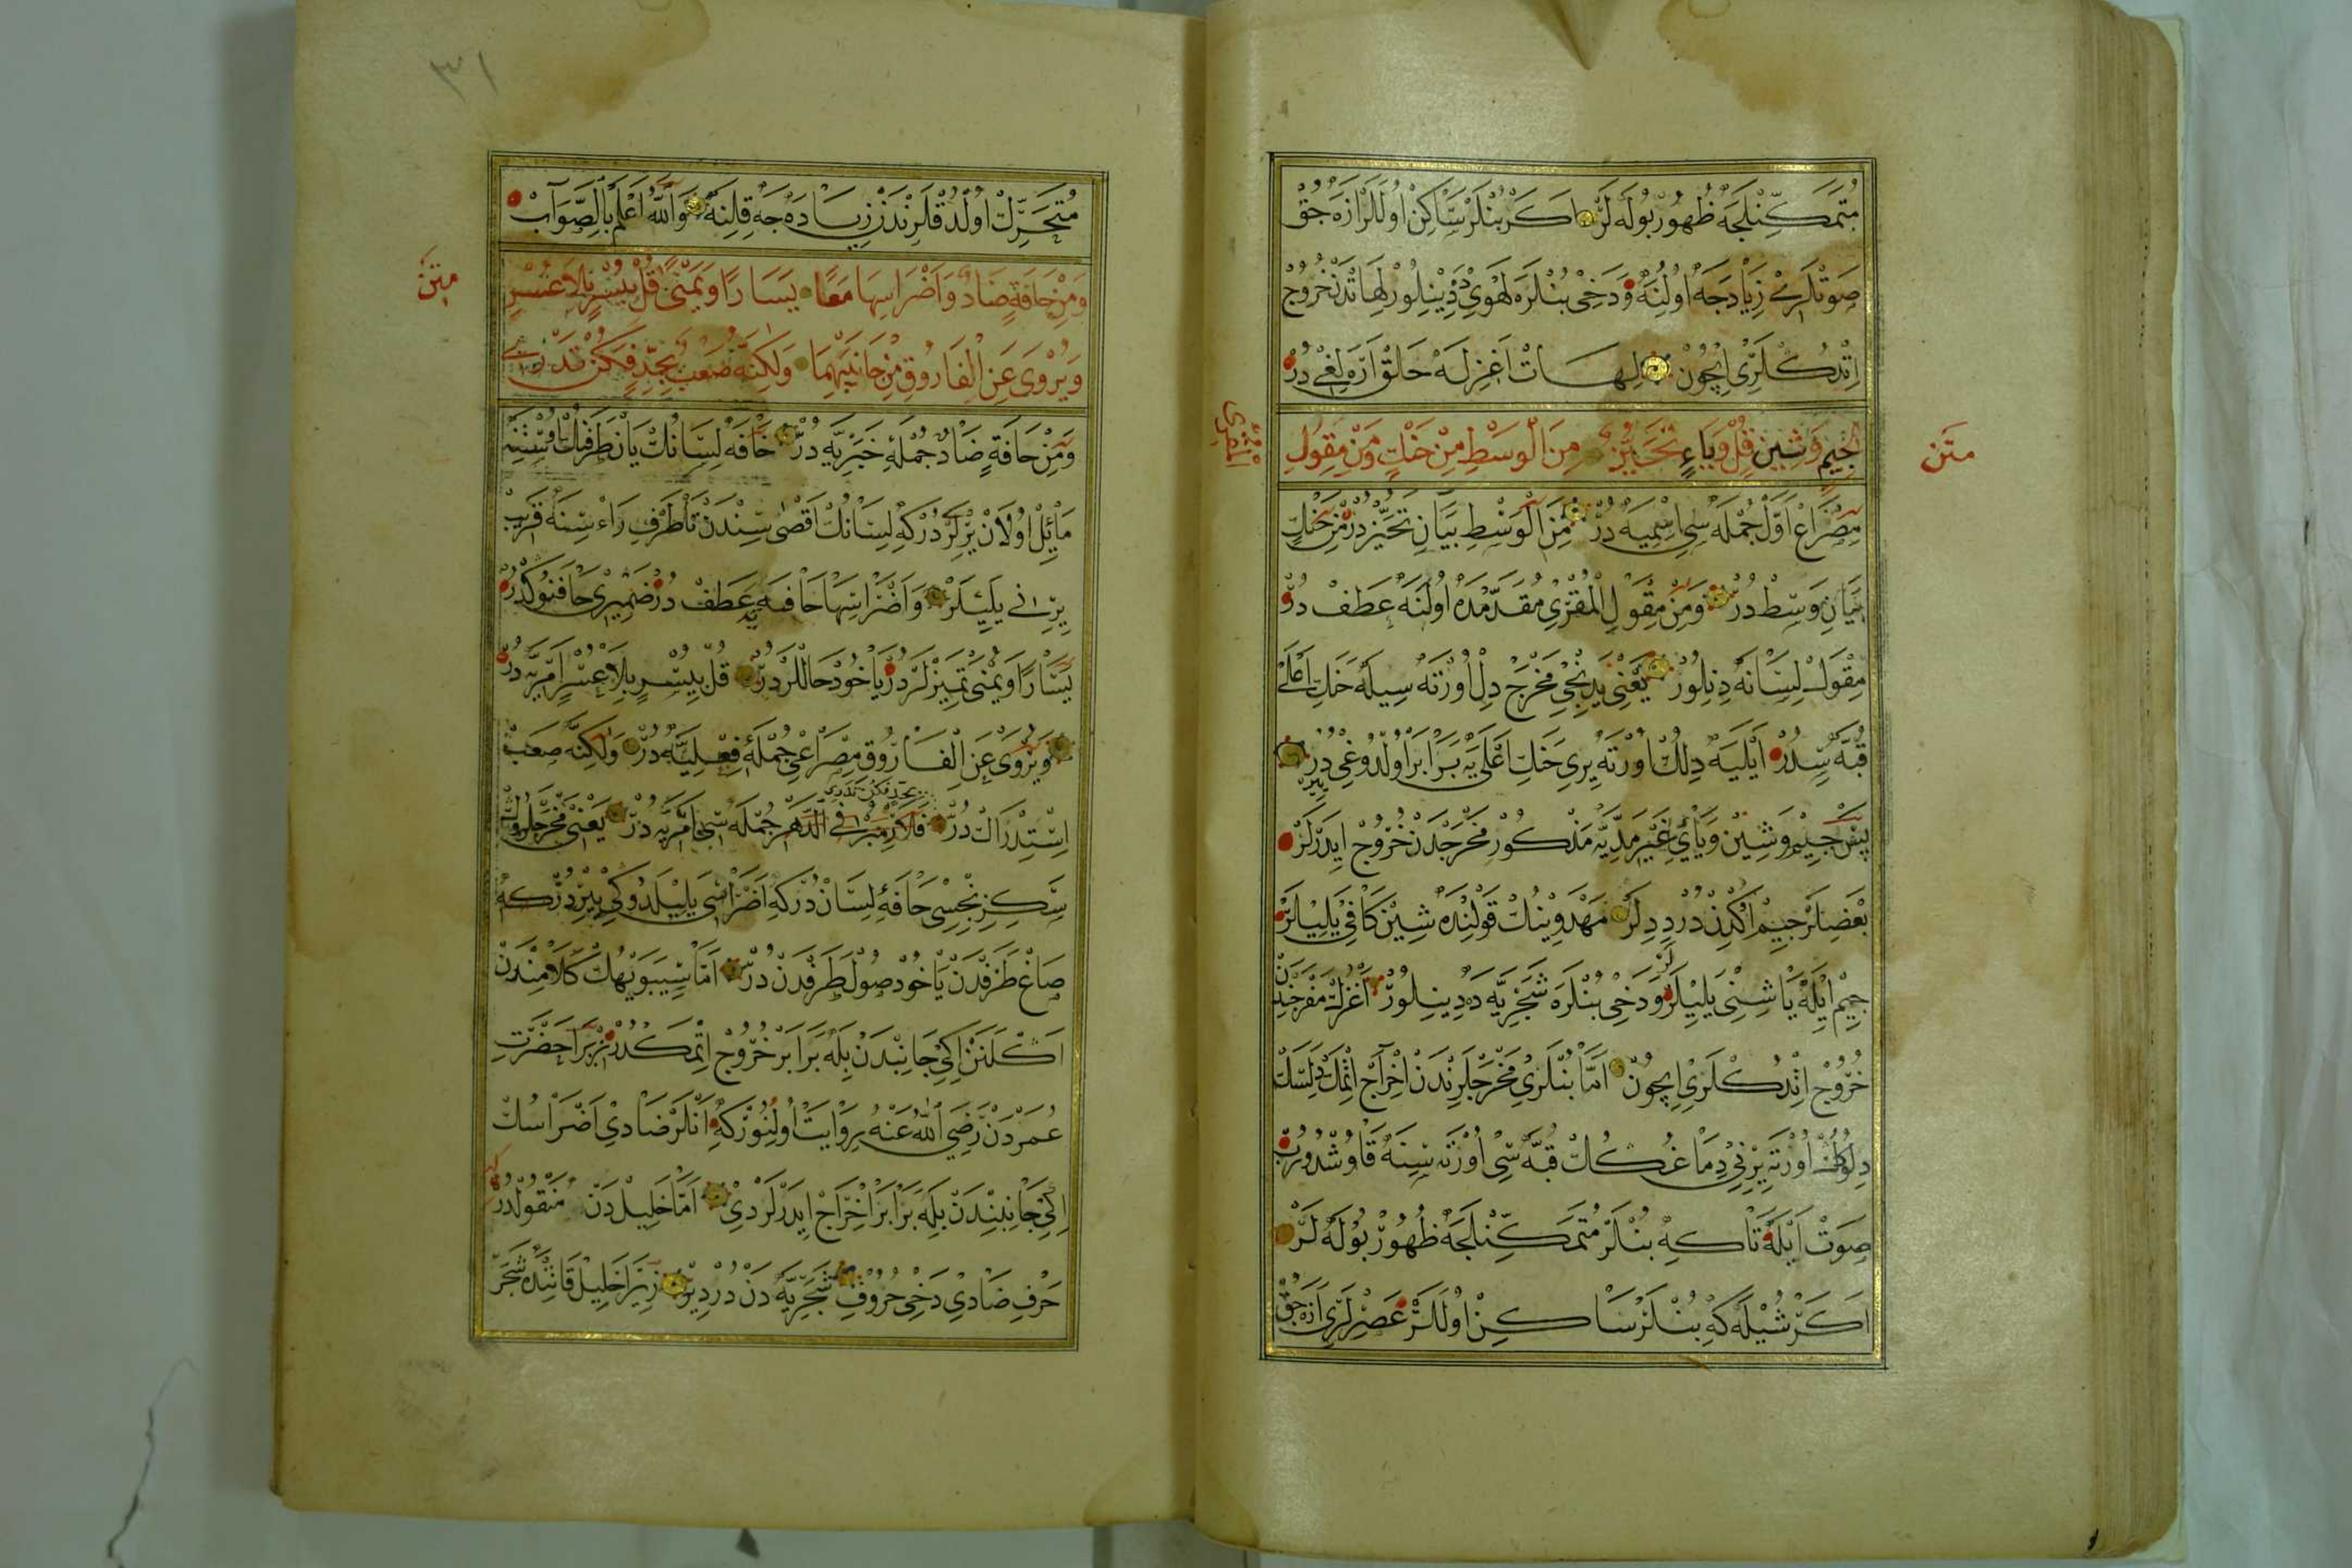 متمكنلجه ظهور بوله لر اكر بنلر ساكن اولالر ازه جق
صوتلرى زيادجه اولنه ودخى بنلره لهوى دينلور لهاتدن خروج
اتدكلرى اچون لهات اغزله حلق اره لغى در
متن
الجيم وشين قل وياء تحيز من الوسط من حنك ومن مقول
المقرى
مصراع اول جمله سى اسميه در من الوسط بيان تحيز در من حنك
بيان وسط در ومن مقول المقرى مقدمده اولنه عطف در
مقول لسانه دينلور يعنى يدنجى مخرج دل اورته سيله حنك اعلى
قبه سدر ايليه دلك اورته يرى حنك اعلى يه برابر اولدوغى يردر
پس جيم وشين وياى غير مديه مذكور مخرجدن خروج ايدرلر
بعضلر جيم اكدن در ديدلر مهدوينك قولنده شين كافى يليلر
جيم ايله يا شينى يليلر ودخى بنلره شجريه ده دينلور اغزك مفرجندن
خروج اتدكلرى اچون اما بنلرى مخرجلرندن اخراج اتمك دلسك
دلوكك اورته يرنى دماغكك قبه سى اورته سنه قاوشدورب
صوت ايله تا كه بنلر متمكنلجه ظهور بوله لر
اكر شيله كه بنلر ساكن اولالر عصرلرى ازه جق
٣١
متحرك اولدقلرندن زياده جه قلنه والله اعلم بالصواب
متن
ومن حافة ضاد واضراسها معا يسارا ويمنى قل بيسر بلا عسر
ويروى عن الفاروق من جانبيهما ولكنه صعب بجد فكن تدرى
ومن حافة ضاد جمله خبريه در حافه لسانك يان طرفك اوستنه
مائل اولان يرلردر كه لسانك اقصى سندن تا طرف راء سنه قريب
يرنى يليلر واضراسها حافه يه عطف در ضميرى حافنوكدر
يسارا ويمنى تميزلردر ياخود حاللردر قل بيسر بلا عسر امريه در
ويروى عن الفاروق مصراعى جمله فعليه در ولكنه صعب
بجد فكن تدرى
استدراك در فلازم بر فى الدهر جمله سى امريه در يعنى مخرجلروك
سكزنجسى حافه لسان در كه اضراسى يليلدوكى يردر كه
صاغ طرفدن ياخود صول طرفدن در اما سيبويهك كلامندن
اكلنن ايكى جانبدن بله برابر خروج اتمكدر زيرا حضرت
عمردن رضي الله عنه روايت اولنور كه انلر ضادى اضراسك
ايكى جانبندن بله برابر اخراج ايدرلردى اما خليل دن منقولدر كه
حرف ضادى دخى حروف شجريه دن در ديو زيرا خليل قاتنده شجر